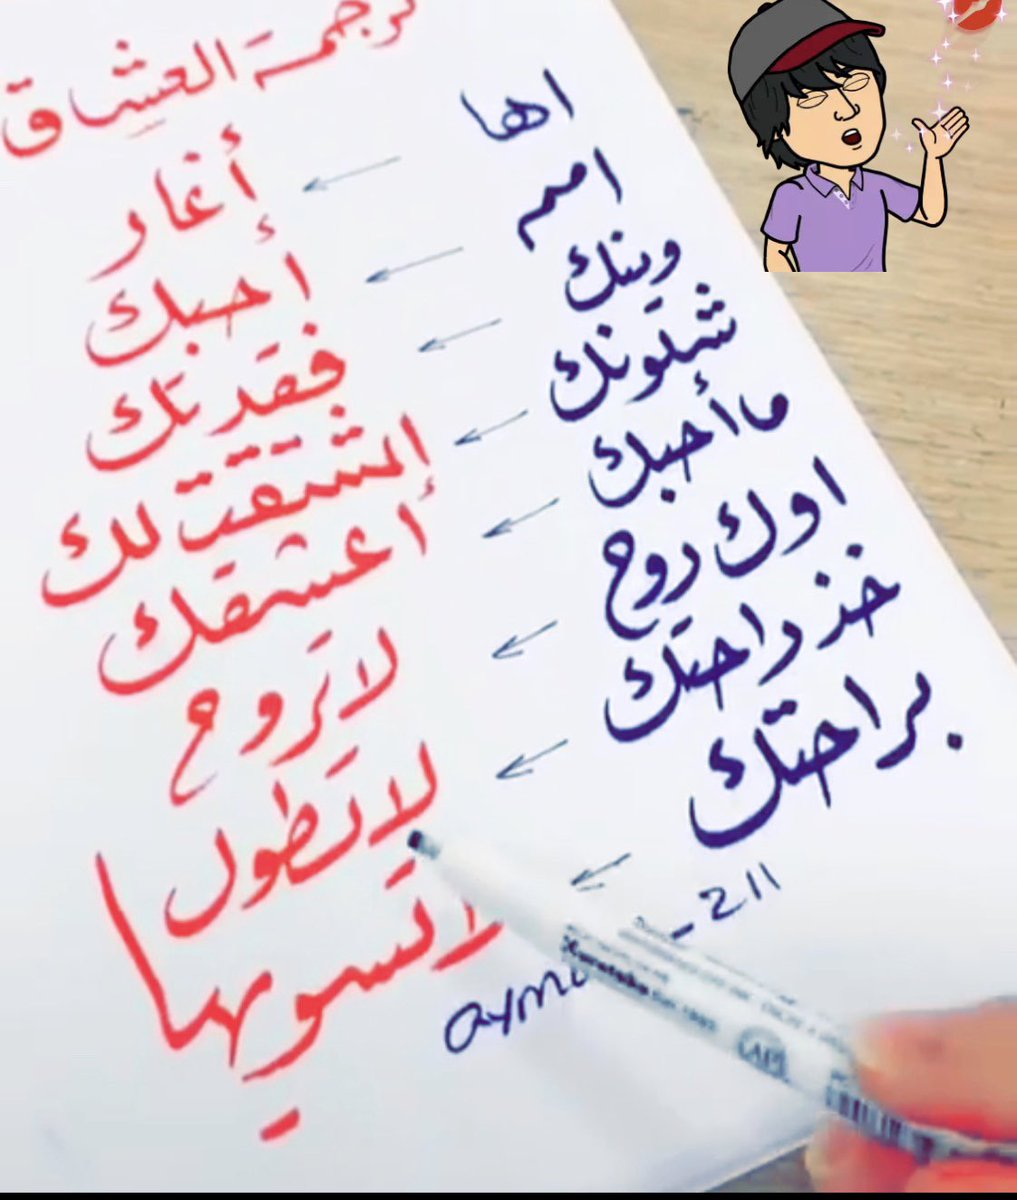 ترجمة العشاق
اها ← أغار
اممم ← أحبك
وينك ← فقدتك
شلونك ← إشتقت لك
ما أحبك ← أعشقك
اوك روح ← لا تروح
خذ راحتك ← لا تطول
براحتك ← لا تسويها
_211
Kuretake